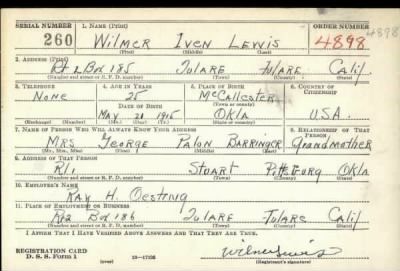 SERIAL NUMBER 1. NAME (Print) ORDER NUMBER
260 Wilmer Iven Lewis 4898 4898
(First) (Middle) (Last)
2. ADDRESS (Print)
Rt 2 Box 185 Tulare Tulare Calif.
(Number and street or R. F. D. number) (Town) (County) (State)
3. TELEPHONE 4. AGE IN YEARS 5. PLACE OF BIRTH 6. COUNTRY OF CITIZENSHIP
None 25 McCallester
DATE OF BIRTH (Town or county)
May 21 1915 Okla U.S.A.
(Exchange) (Number) (Mo.) (Day) (Yr.) (State or country)
7. NAME OF PERSON WHO WILL ALWAYS KNOW YOUR ADDRESS 8. RELATIONSHIP OF THAT PERSON
Mrs George Talon Barringer Grandmother
(Mr., Mrs., Miss) (First) (Middle) (Last)
9. ADDRESS OF THAT PERSON
Rt 1 Stuart Pittsburg Okla
(Number and street or R. F. D. number) (Town) (County) (State)
10. EMPLOYER'S NAME
Ray H. Oestring
11. PLACE OF EMPLOYMENT OR BUSINESS
Rt 2 Box 186 Tulare Tulare Calif
(Number and street or R. F. D. number) (Town) (County) (State)
I AFFIRM THAT I HAVE VERIFIED ABOVE ANSWERS AND THAT THEY ARE TRUE.
REGISTRATION CARD Wilmer Lewis
D. S. S. Form 1 (over) (Registrant's signature)